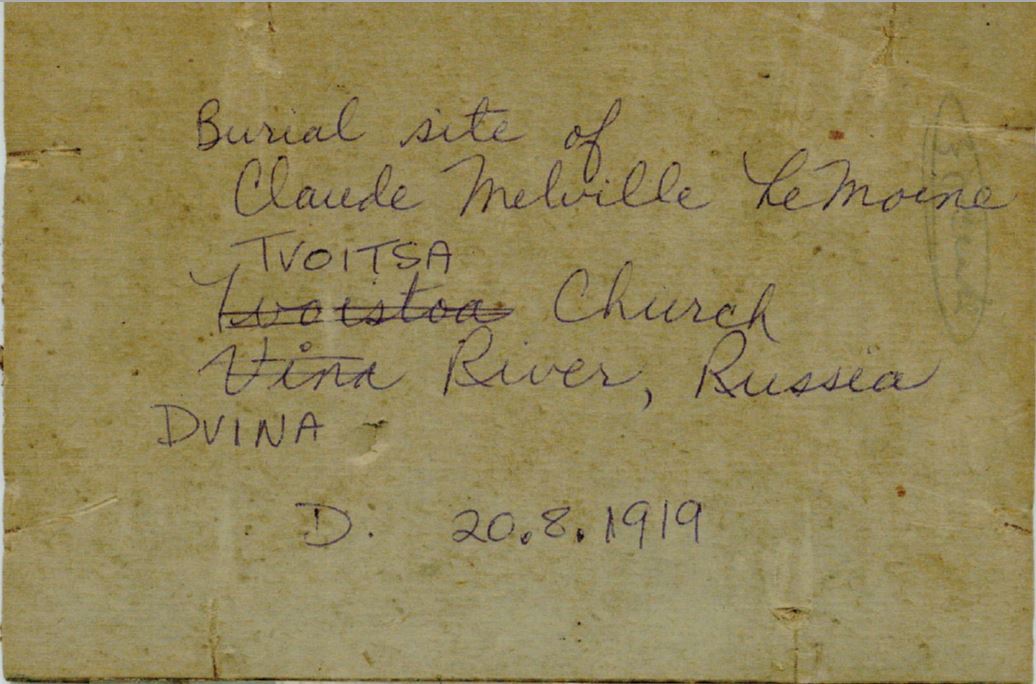 Burial site of
Claude Melville LeMoine
TVOITSA
Tvoistoa Church
Vina River, Russia
DVINA
D. 20.8.1919